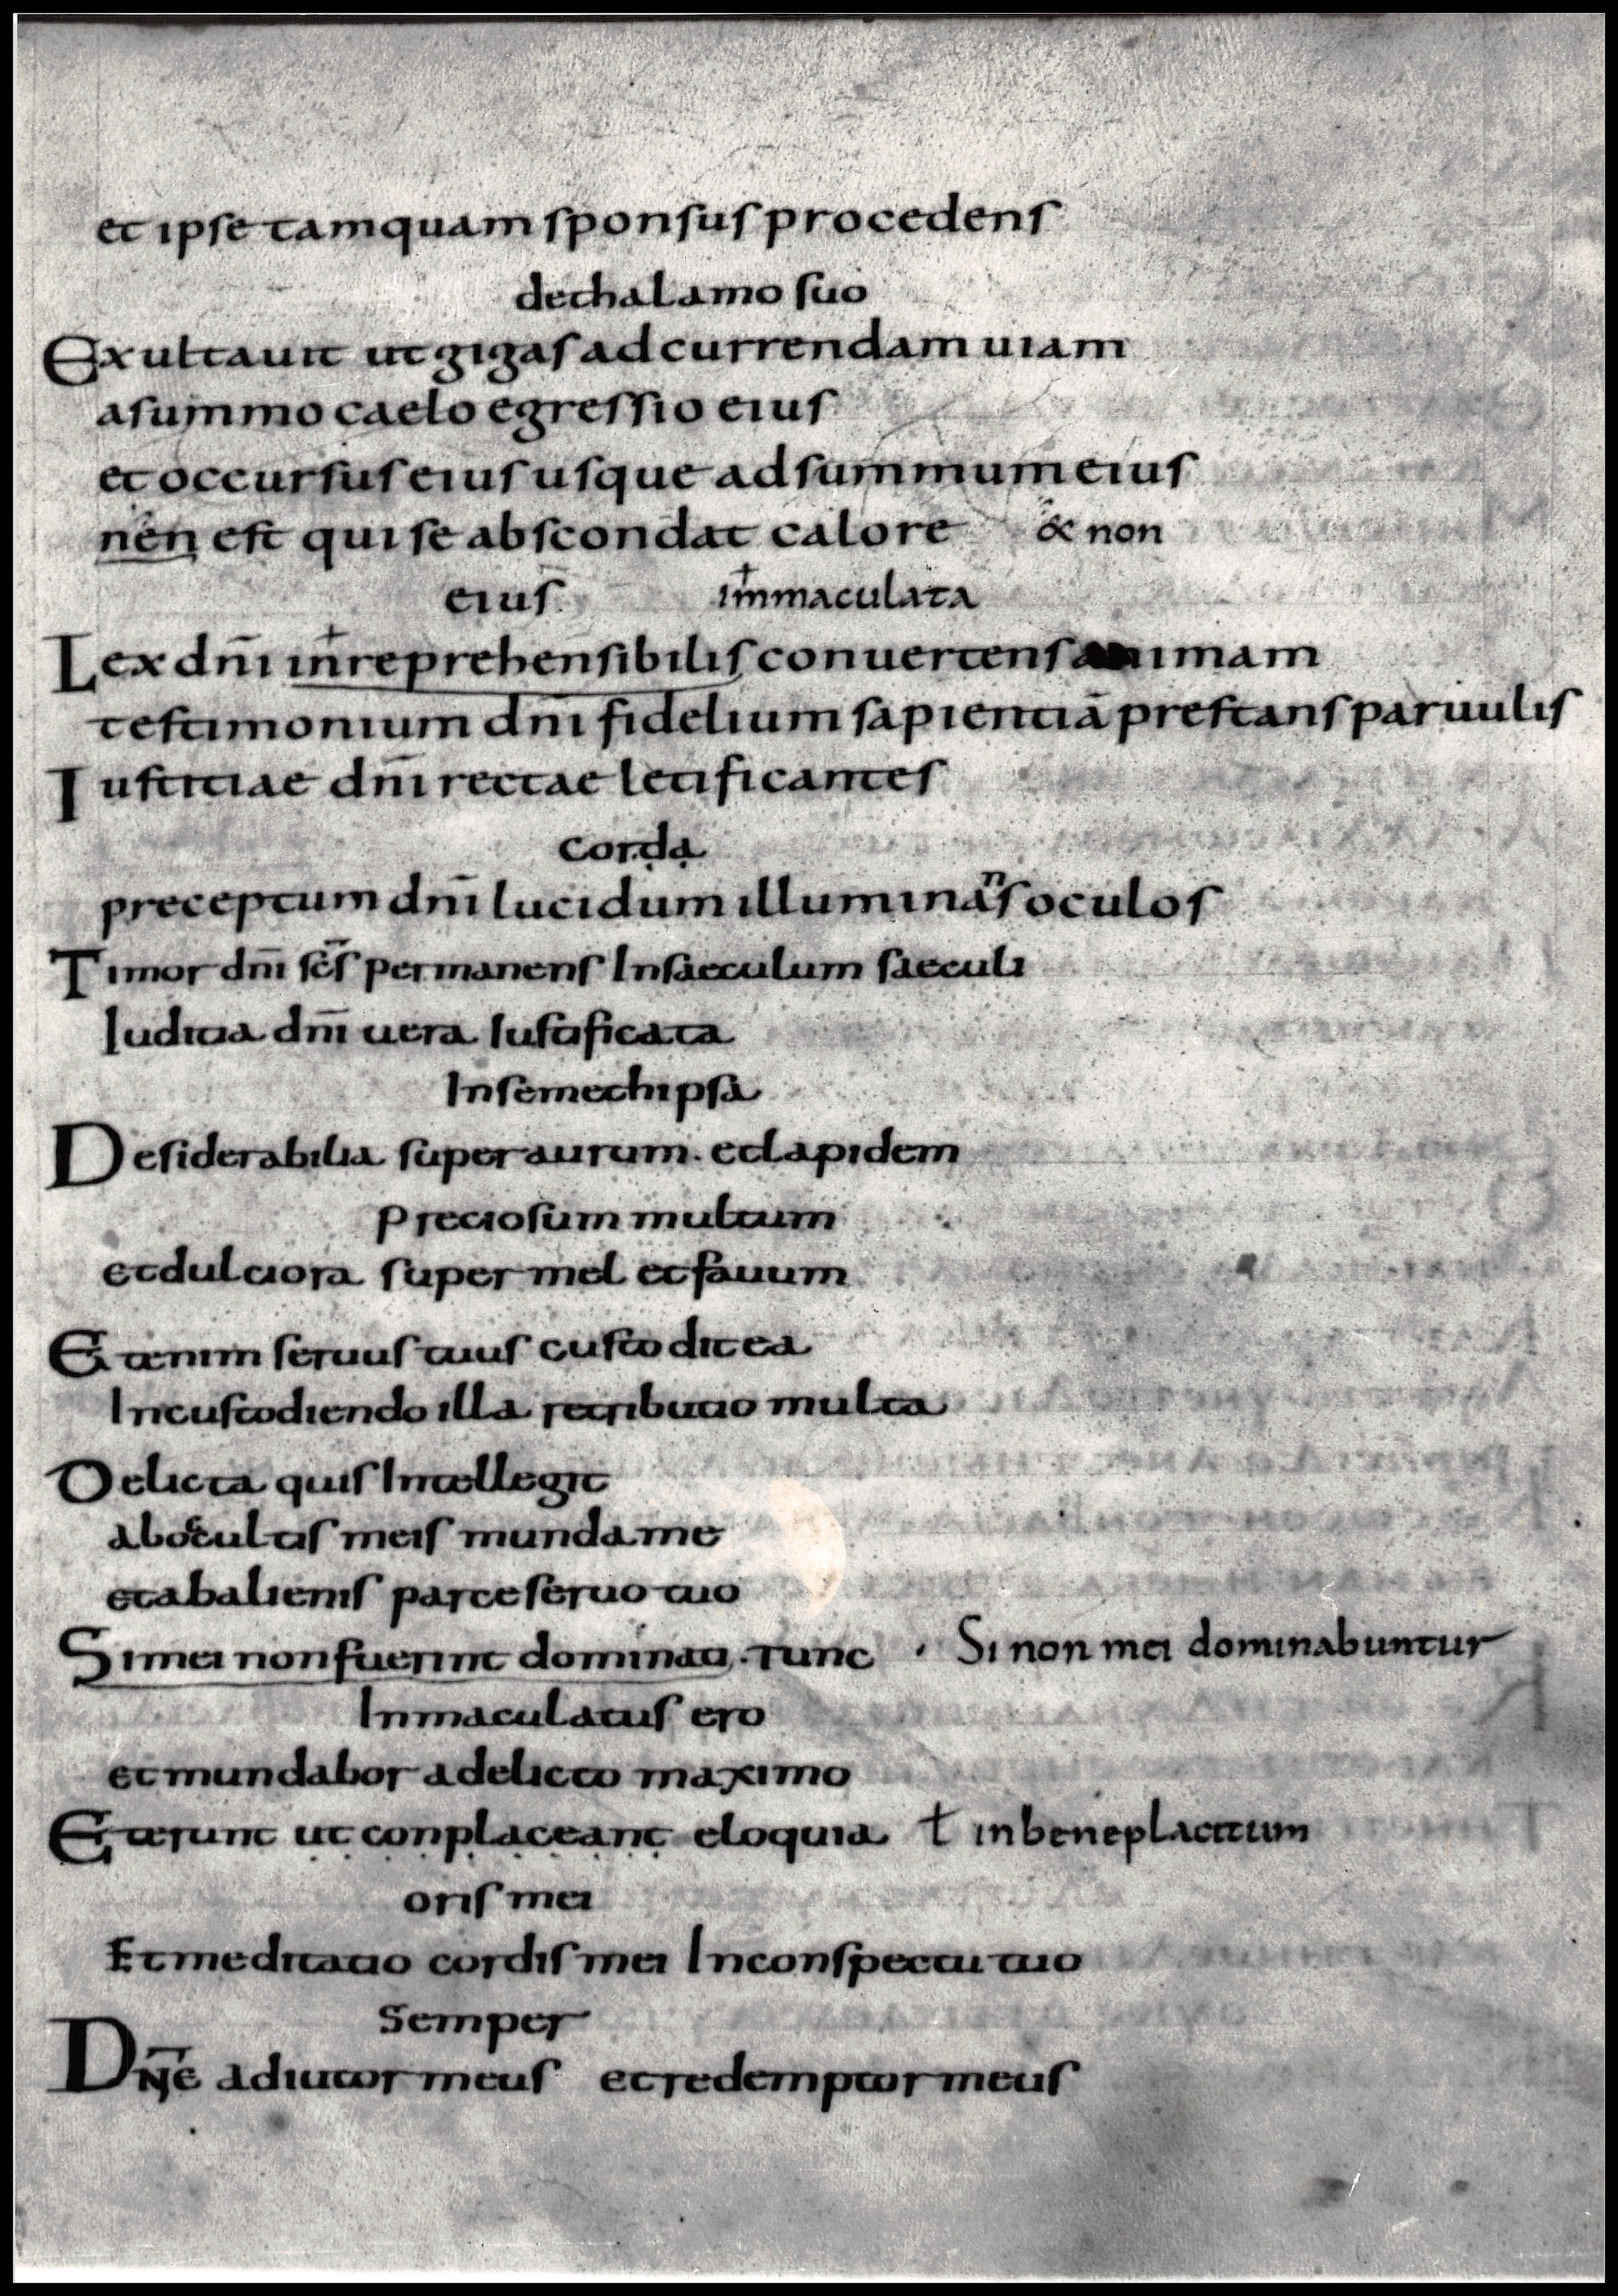 et ipse tamquam sponsus procedens
dethalamo suo
Exultauit ut gigas ad currendam uiam
asummo caelo egressio eius
et occursus eius usque ad summum eius
nen est qui se abscondat calore & non
eius immaculata
Lex dn̄i inreprehensibilis conuertens animam
testimonium dn̄i fidelium sapientiā prestans paruulis
Iustitiae dn̄i rectae letificantes
corda
preceptum dn̄i lucidum illuminaⁿs oculos
Timor dn̄i sc̄s permanens Insaeculum saeculi
Iudicia dn̄i uera Iustificata
Insemethipsa
Desiderabilia super aurum. etlapidem
preciosum multum
etdulciora super mel etfauum
Etenim seruus tuus custodit ea
Incustodiendo illa retributio multa
Delicta quis Intellegit
aboccultis meis munda me
etabalienis parce seruo tuo
Simei nonfuerint dominati. Tunc · Si non mei dominabuntur
Inmaculatus ero
et mundabor adelicto maximo
Eterunt ut conplaceant eloquia ł inbeneplacitum
oris mei
Et meditatio cordis mei Inconspectu tuo
semper
Dn̄e adiutor meus et redemptor meus